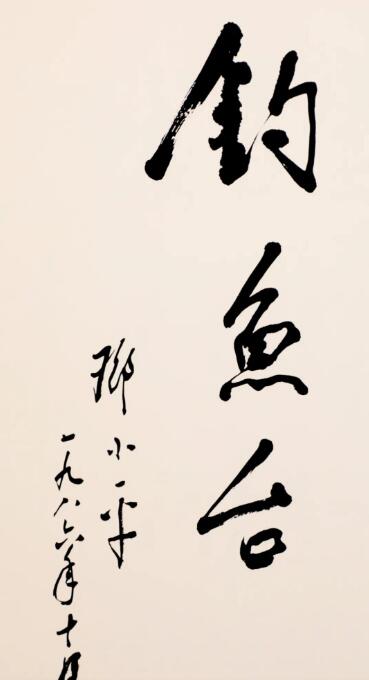 钓鱼台
邓小平
一九八六年十月